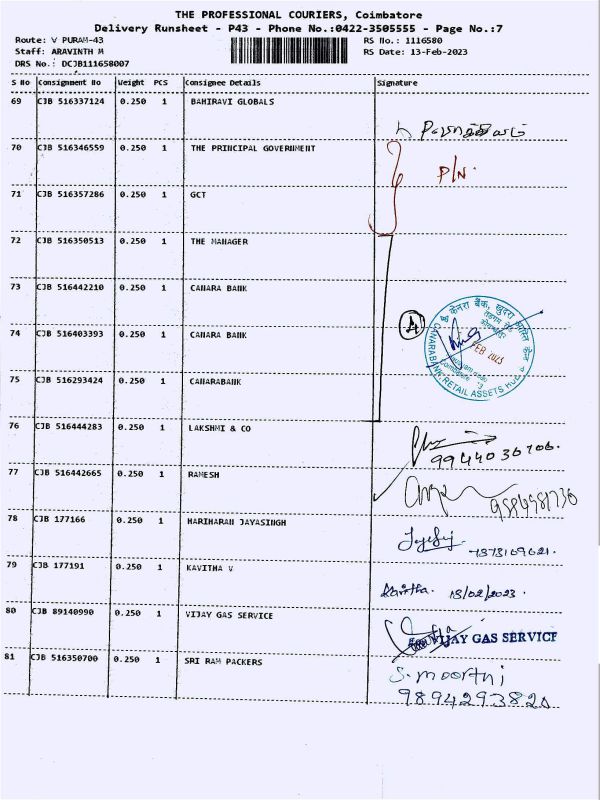 THE PROFESSIONAL COURIERS, Coimbatore
Delivery Runsheet - P43 - Phone No.:0422-3505555 - Page No.:7
Route: V PURAM-43 RS No.: 1116580
Staff: ARAVINTH M RS Date: 13-Feb-2023
DRS No.: DCJB111658007
S No Consignment No Weight PCS Consignee Details Signature
69 CJB 516337124 0.250 1 BAHIRAVI GLOBALS
70 CJB 516346559 0.250 1 THE PRINCIPAL GOVERNMENT
P/N.
71 CJB 516357286 0.250 1 GCT
72 CJB 516350513 0.250 1 THE MANAGER
73 CJB 516442210 0.250 1 CANARA BANK
4
केनरा बैंक, खुदरा आस्ति केंद्र
CANARABANK RETAIL ASSETS HUB
FEB 2023
74 CJB 516403393 0.250 1 CANARA BANK
75 CJB 516293424 0.250 1 CANARABANK
76 CJB 516444283 0.250 1 LAKSHMI & CO
9944036706.
77 CJB 516442665 0.250 1 RAMESH
78 CJB 177166 0.250 1 HARIHARAN JAYASINGH
7373169621.
79 CJB 177191 0.250 1 KAVITHA V
Kavitha. 13/02/2023.
80 CJB 89140990 0.250 1 VIJAY GAS SERVICE
VIJAY GAS SERVICE
81 CJB 516350700 0.250 1 SRI RAM PACKERS
S. moorthi
9894293820